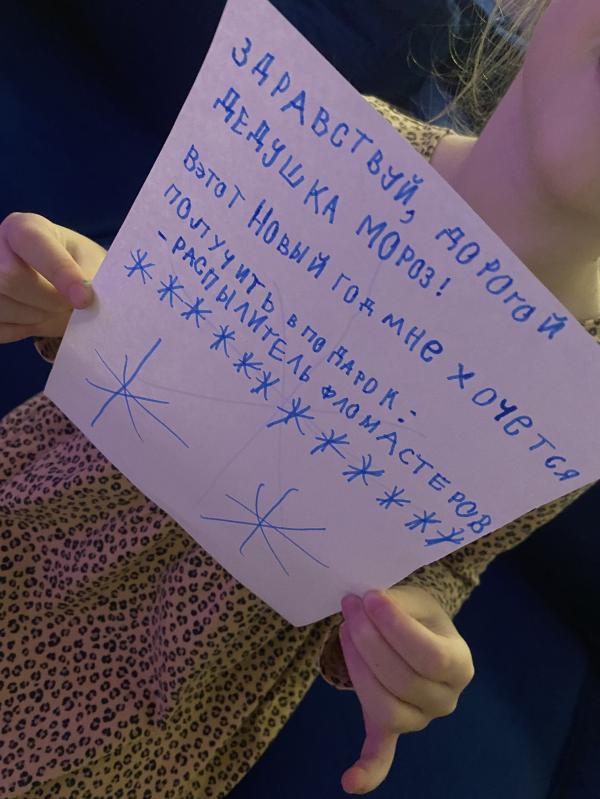 ЗДРАВСТВУЙ, ДОРОГОЙ
ДЕДУШКА МОРОЗ!
Вэтот Новый год мне хочется
получить в подарок:
- РАСПЫЛИТЕЛЬ ФЛОМАСТЕРОВ